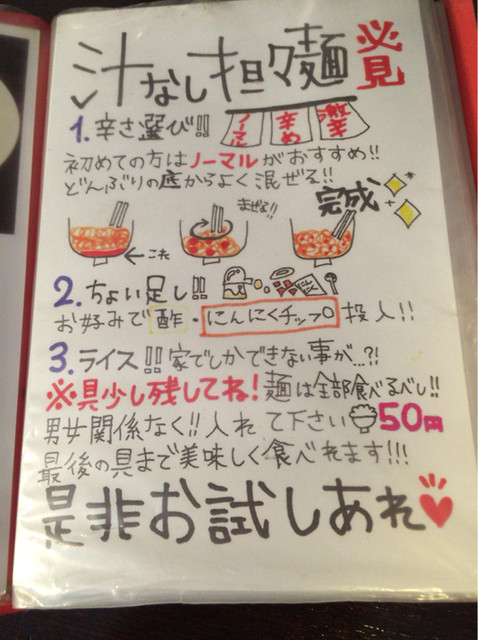 汁なし担々麺
必見
1. 辛さ選び!!
ノーマル
辛め
激辛
初めての方はノーマルがおすすめ!!
どんぶりの底からよく混ぜる!!
まぜる!!
完成
これ
2. ちょい足し!!
お好みで酢・にんにくチップ投入!!
3. ライス!!家でしかできない事が...?!
※具少し残してね!麺は全部食べるべし!!
男女関係なく!!入れて下さい 50円
最後の具まで美味しく食べれます!!!
是非お試しあれ